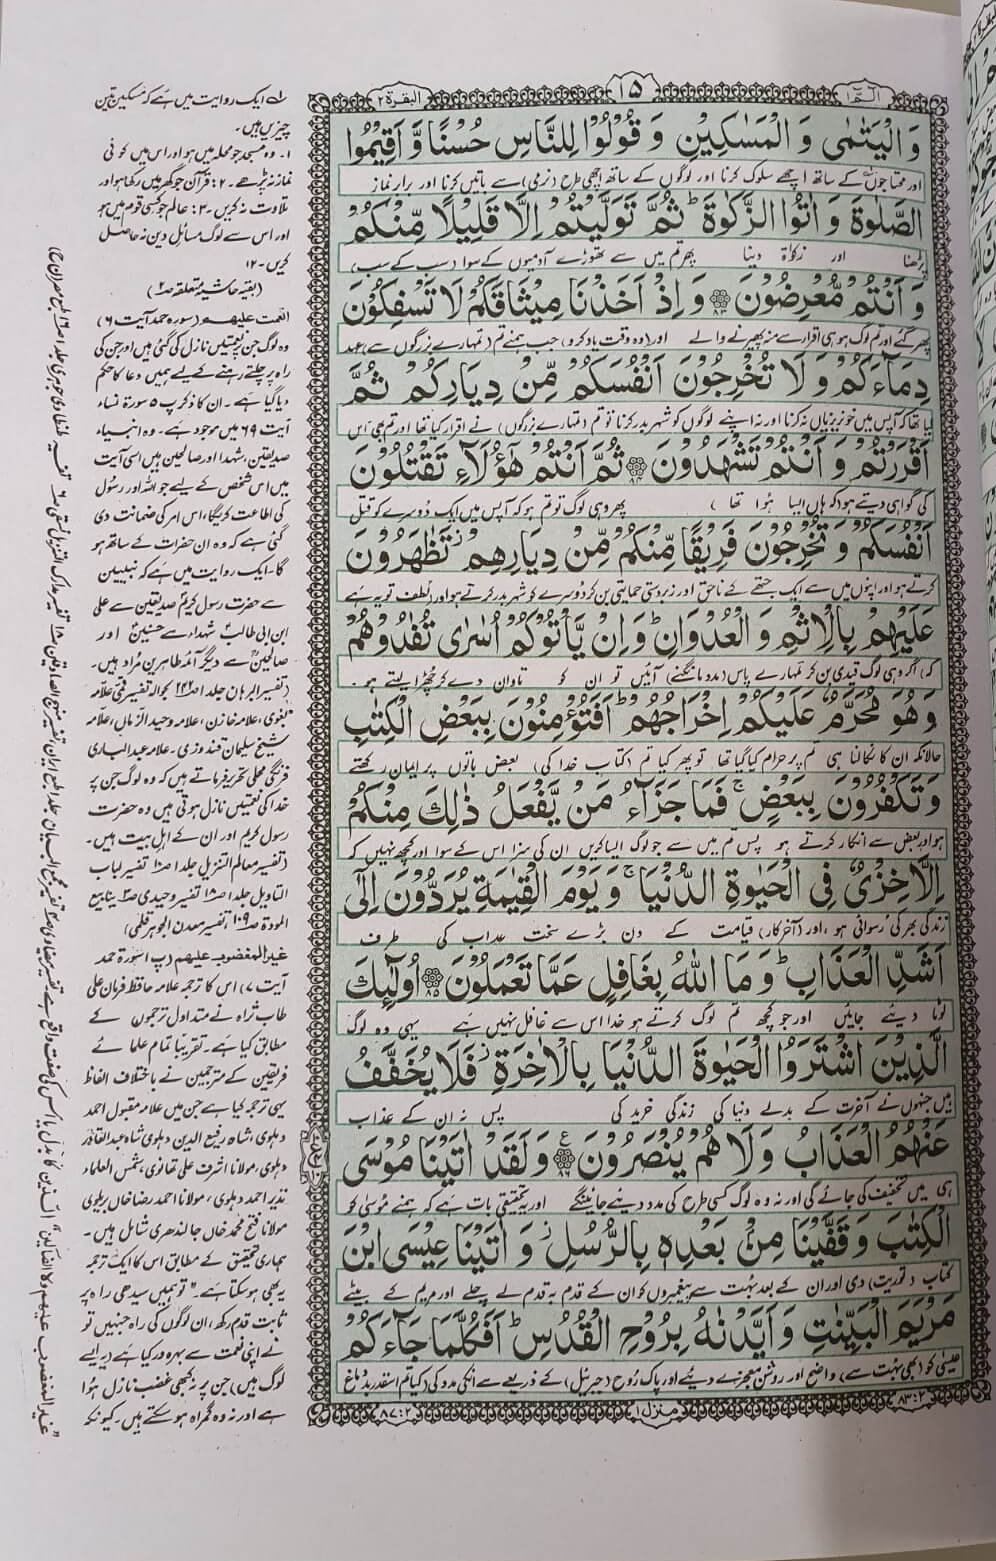 البقرة ٢
١٥
الٓمّٓ ١
وَالْيَتٰمٰى وَ الْمَسٰكِيْنِ وَ قُوْلُوْا لِلنَّاسِ حُسْنًا وَّ اَقِيْمُوا
اور محتاجوں کے ساتھ اچھے سلوک کرنا اور لوگوں کے ساتھ اچھی طرح (نرمی) سے باتیں کرنا اور برابر نماز
الصَّلٰوةَ وَ اٰتُوا الزَّكٰوةَ ؕ ثُمَّ تَوَلَّيْتُمْ اِلَّا قَلِيْلًا مِّنْكُمْ
پڑھنا اور زکوٰة دینا پھر تم میں سے تھوڑے آدمیوں کے سوا (سب کے سب)
وَ اَنْتُمْ مُّعْرِضُوْنَ ۝۸۳ وَ اِذْ اَخَذْنَا مِيْثَاقَكُمْ لَا تَسْفِكُوْنَ
پھر گئے اور تم لوگ ہو ہی اقرار سے منہ پھیرنے والے اور (وہ وقت یاد کرو) جب ہم نے تم (تمہارے بزرگوں) سے عہد
دِمَآءَكُمْ وَ لَا تُخْرِجُوْنَ اَنْفُسَكُمْ مِّنْ دِيَارِكُمْ ثُمَّ
لیا تھا کہ آپس میں خونریزیاں نہ کرنا اور نہ اپنے لوگوں کو شہر بدر کرنا تو تم (تمہارے بزرگوں) نے اقرار کیا تھا اور تم بھی اس
اَقْرَرْتُمْ وَ اَنْتُمْ تَشْهَدُوْنَ ۝۸۴ ثُمَّ اَنْتُمْ هٰٓؤُلَآءِ تَقْتُلُوْنَ
کی گواہی دیتے ہو (کہ ہاں ایسا ہوا تھا) پھر وہی لوگ تو تم ہو کہ آپس میں ایک دوسرے کو قتل
اَنْفُسَكُمْ وَ تُخْرِجُوْنَ فَرِيْقًا مِّنْكُمْ مِّنْ دِيَارِهِمْ ؗ تَظٰهَرُوْنَ
کرتے ہو اور اپنوں میں سے ایک جتھے کے ناحق اور زبردستی حمایتی بن کر دوسرے کو شہر بدر کرتے ہو اور لطف تو یہ ہے
عَلَيْهِمْ بِالْاِثْمِ وَ الْعُدْوَانِ ؕ وَ اِنْ يَّاْتُوْكُمْ اُسٰرٰى تُفٰدُوْهُمْ
کہ اگر وہی لوگ قیدی بن کر تمہارے پاس (مدد مانگنے) آئیں تو ان کو تاوان دے کر چھڑا لیتے ہو۔
وَ هُوَ مُحَرَّمٌ عَلَيْكُمْ اِخْرَاجُهُمْ ؕ اَفَتُؤْمِنُوْنَ بِبَعْضِ الْكِتٰبِ
حالانکہ ان کا نکالنا ہی تم پر حرام کیا گیا تھا تو پھر کیا تم (کتاب خدا کی) بعض باتوں پر ایمان رکھتے
وَ تَكْفُرُوْنَ بِبَعْضٍ ۚ فَمَا جَزَآءُ مَنْ يَّفْعَلُ ذٰلِكَ مِنْكُمْ
ہو اور بعض سے انکار کرتے ہو پس تم میں سے جو لوگ ایسا کریں ان کی سزا اس کے سوا اور کچھ نہیں کہ
اِلَّا خِزْيٌ فِي الْحَيٰوةِ الدُّنْيَا ۚ وَ يَوْمَ الْقِيٰمَةِ يُرَدُّوْنَ اِلٰٓى
زندگی بھر کی رسوائی ہو، اور (آخرکار) قیامت کے دن بڑے سخت عذاب کی طرف
اَشَدِّ الْعَذَابِ ؕ وَ مَا اللّٰهُ بِغَافِلٍ عَمَّا تَعْمَلُوْنَ ۝۸۵ اُولٰٓئِكَ
لوٹا دیئے جائیں اور جو کچھ تم لوگ کرتے ہو خدا اس سے غافل نہیں ہے یہی وہ لوگ
الَّذِيْنَ اشْتَرَوُا الْحَيٰوةَ الدُّنْيَا بِالْاٰخِرَةِ ؗ فَلَا يُخَفَّفُ
ہیں جنہوں نے آخرت کے بدلے دنیا کی زندگی خرید کی پس نہ ان کے عذاب
عَنْهُمُ الْعَذَابُ وَ لَا هُمْ يُنْصَرُوْنَ ۝۸۶ وَ لَقَدْ اٰتَيْنَا مُوْسَى
ہی میں تخفیف کی جائے گی اور نہ وہ لوگ کسی طرح کی مدد دیئے جائینگے اور یہ تحقیقی بات ہے کہ ہم نے موسیٰ کو
الْكِتٰبَ وَ قَفَّيْنَا مِنْۢ بَعْدِهٖ بِالرُّسُلِ ؗ وَ اٰتَيْنَا عِيْسَى ابْنَ
کتاب (توریت) دی اور ان کے بعد بہت سے پیغمبروں کو ان کے قدم بہ قدم لے چلے اور مریم کے بیٹے
مَرْيَمَ الْبَيِّنٰتِ وَ اَيَّدْنٰهُ بِرُوْحِ الْقُدُسِ ؕ اَفَكُلَّمَا جَآءَكُمْ
عیسیٰ کو (بھی بہت سے) واضح اور روشن معجزے دیئے اور پاک روح (جبرئیل) کے ذریعے سے انکی مدد کی کیا تم اسقدر بددماغ
۸۳:۲
منزل ۱
۸۷:۲
ایک روایت میں ہے کہ مسکین تین
چیزیں ہیں۔
۱۔ وہ مسجد جو محلہ میں ہو اور اس میں کوئی
نماز نہ پڑھے۔ ۲: قرآن جو گھر میں رکھا ہو اور
تلاوت نہ کریں۔ ۳: عالم جو کسی قوم میں ہو
اور اس سے لوگ مسائل دین نہ حاصل
کریں۔ ۱۲
(بقیہ حاشیہ متعلقہ ص۲)
انعمت علیہم (سورہ حمد آیت ۶)
وہ لوگ جن پر نعمتیں نازل کی گئی ہیں اور جن کی
راہ پر چلتے رہنے کے لیے ہمیں دعا کا حکم
دیا گیا ہے۔ ان کا ذکر پ ۵ سورۃ نساء
آیت ۶۹ میں موجود ہے۔ وہ انبیاء
صدیقین، شہدا اور صالحین ہیں اسی آیت
میں اس شخص کے لیے جو اللہ اور رسول
کی اطاعت کریگا، اس امر کی ضمانت دی
گئی ہے کہ وہ ان حضرات کے ساتھ ہو
گا۔ ایک روایت میں ہے کہ نبیین
سے حضرت رسول کریم صدیقین سے علی
ابن ابی طالب شہداء سے حسنین اور
صالحین سے دیگر آئمہ طاہرین مراد ہیں۔
(تفسیر البرہان جلد ۱ ص۲۴ بحوالہ تفسیر قمی) علامہ
بغوی، علامہ خازن، علامہ وحید الزماں، علامہ
شیخ سلیمان قندوزی۔ علامہ عبدالباری
فرنگی محلی تحریر فرماتے ہیں کہ وہ لوگ جن پر
خدا کی نعمتیں نازل ہوتی ہیں وہ حضرت
رسول کریم اور ان کے اہل بیت ہیں۔
(تفسیر معالم التنزیل جلد ۱ ص۱۰ تفسیر لباب
التاویل جلد ۱ ص۱۸ تفسیر وحیدی ص۳ ینابیع
المودة ص۱۰۹، تفسیر معدن الجوہر قلمی)
غیر المغضوب علیہم (پ۱ سورۃ حمد
آیت ۷) اس کا ترجمہ علامہ حافظ فرمان علی
طاب ثراہ نے متداول ترجموں کے
مطابق کیا ہے۔ تقریباً تمام علمائے
فریقین کے مترجمین نے باختلاف الفاظ
یہی ترجمہ کیا ہے جن میں علامہ مقبول احمد
دہلوی، شاہ رفیع الدین دہلوی شاہ عبدالقادر
دہلوی، مولانا اشرف علی تھانوی، شمس العلماء
نذیر احمد دہلوی، مولانا احمد رضا خاں بریلوی
مولانا فتح محمد خاں جالندھری شامل ہیں۔
ہماری تحقیق کے مطابق اس کا ایک ترجمہ
یہ بھی ہو سکتا ہے۔ "تو ہمیں سیدھی راہ پر
ثابت قدم رکھ، ان لوگوں کی راہ جنہیں تو
نے اپنی نعمت سے بہرہ ور کیا ہے (یہ ایسے
لوگ ہیں) جن پر نہ کبھی غضب نازل ہوا
ہے اور نہ وہ گمراہ ہو سکتے ہیں۔ کیونکہ
"غیر المغضوب علیہم ولا الضالین" الذین کا بدل یا اس کی صفت واقع ہے